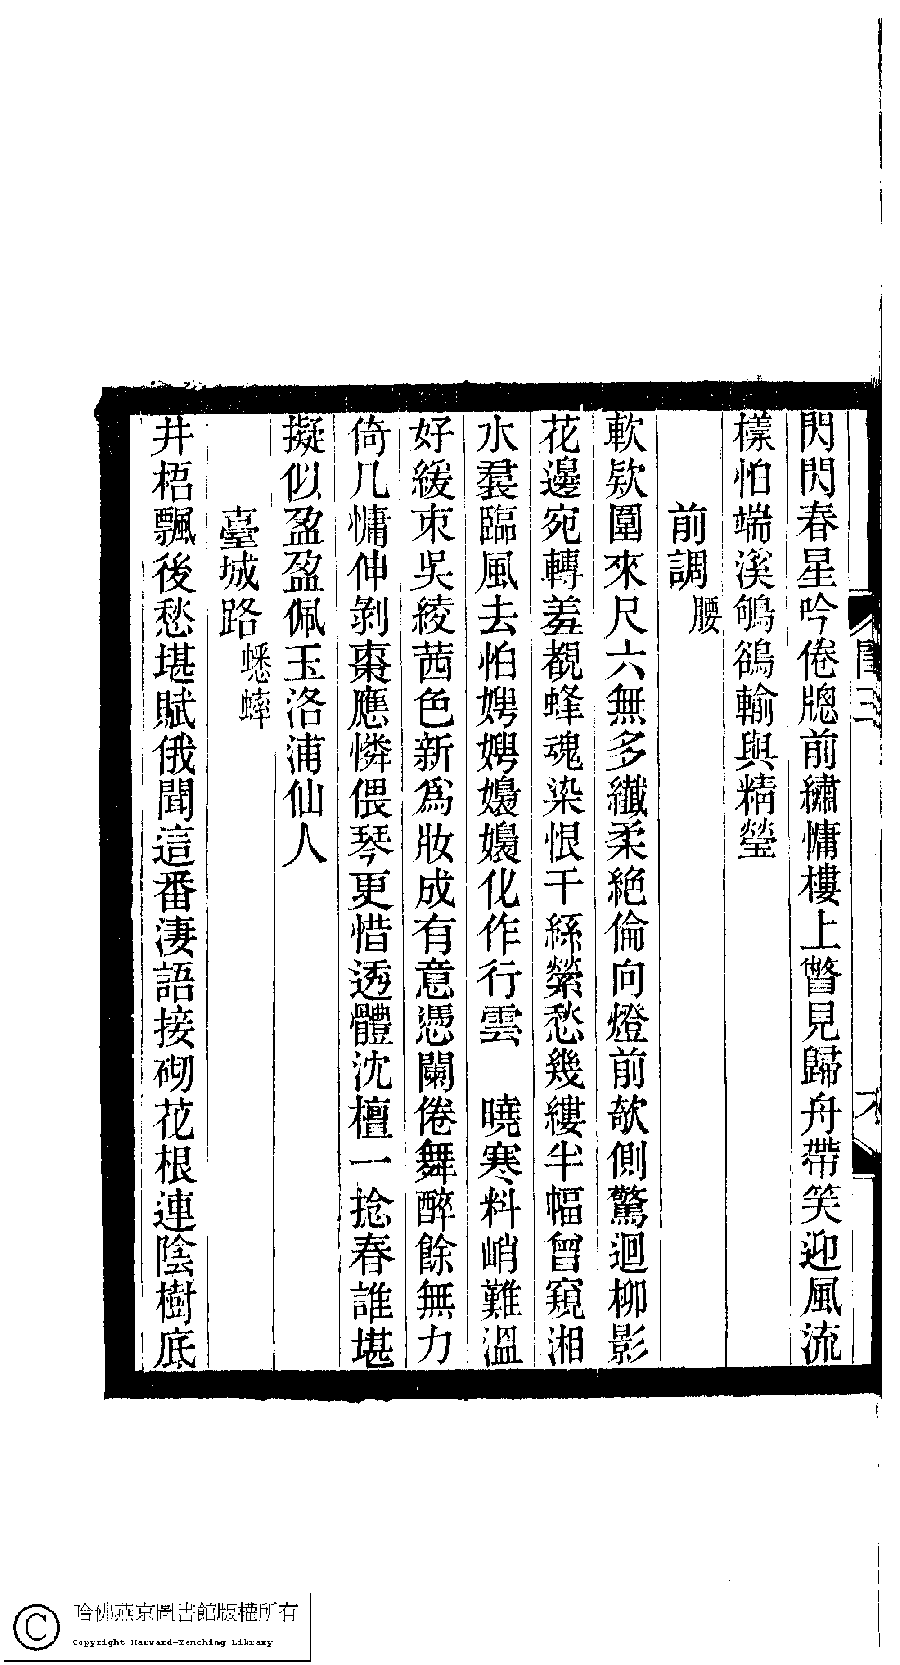 閃閃春星吟倦牕前繡慵樓上瞥見歸舟帶笑迎風流
樣怕端溪鴝鵒輸與精瑩
前調腰
軟欵圍來尺六無多纖柔絶倫向燈前欹側驚迴柳影
花邊宛轉羞覩蜂魂染恨千絲縈愁幾縷半幅曾窺湘
水羣臨風去怕娉娉嬝嬝化作行雲　曉寒料峭難溫
好緩束吳綾茜色新爲妝成有意憑闌倦舞醉餘無力
倚几慵伸剝棗應憐偎琴更惜透體沈檀一捻春誰堪
擬似盈盈佩玉洛浦仙人
臺城路蟋蟀
井梧飄後愁堪賦俄聞這番淒語接砌花根連陰樹底
哈佛燕京圖書館版權所有
Copyright Harvard-Yenching Library